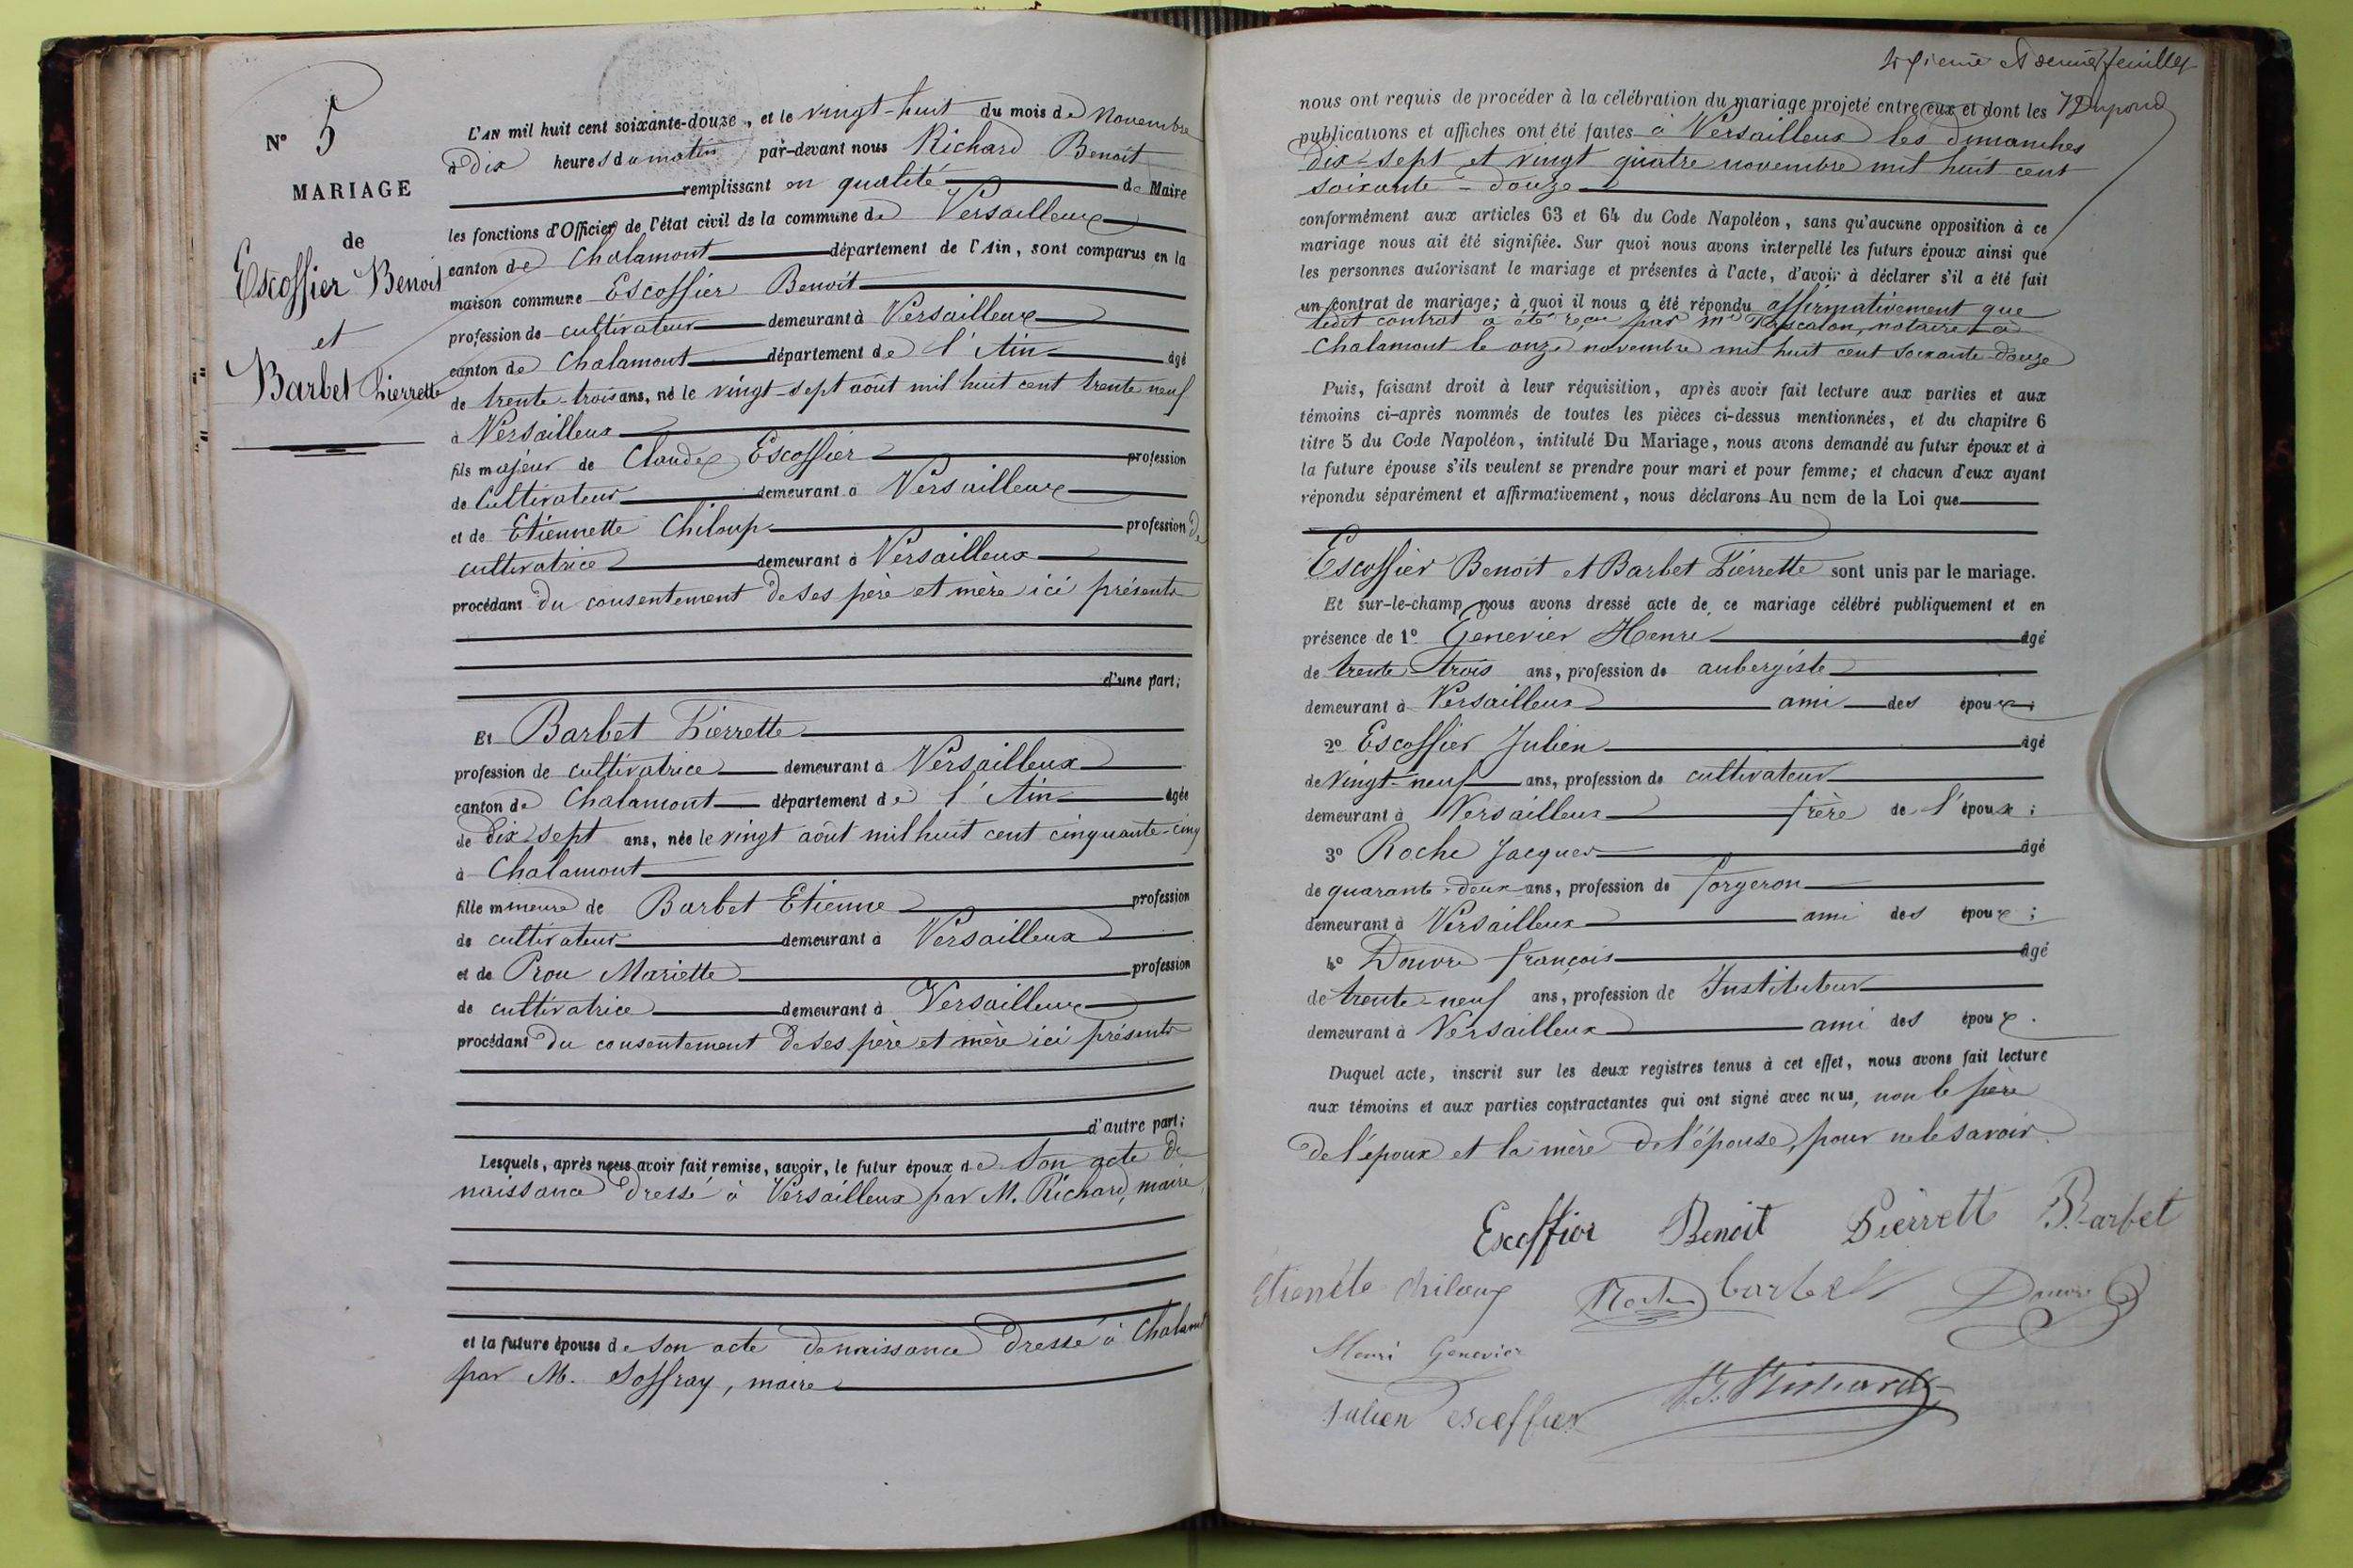 N° 5
MARIAGE
de
Escoffier Benoit
et
Barbet Pierrette
L'AN mil huit cent soixante-douze, et le vingt-huit du mois de Novembre
à dix heures du matin par-devant nous Richard Benoît
remplissant en qualité de Maire
les fonctions d'Officier de l'état civil de la commune de Versailleux
canton de Chalamont département de l'Ain, sont comparus en la
maison commune Escoffier Benoit
profession de cultivateur demeurant à Versailleux
canton de Chalamont département de l'Ain âgé
de trente-trois ans, né le vingt-sept août mil huit cent trente neuf
à Versailleux
fils majeur de Claude Escoffier profession
de Cultivateur demeurant à Versailleux
et de Etiennette Chiloup profession de
cultivatrice demeurant à Versailleux
procédant du consentement de ses père et mère ici présents
d'une part;
Et Barbet Pierrette
profession de cultivatrice demeurant à Versailleux
canton de Chalamont département de l'Ain âgée
de dix sept ans, née le vingt août mil huit cent cinquante-cinq
à Chalamont
fille mineure de Barbet Etienne profession
de cultivateur demeurant à Versailleux
et de Prou Mariette profession
de cultivatrice demeurant à Versailleux
procédant du consentement de ses père et mère ici présents
d'autre part;
Lesquels, après nous avoir fait remise, savoir, le futur époux de son acte de
naissance dressé à Versailleux par M. Richard, maire
et la future épouse de son acte de naissance dressé à Chalamt
par M. Soffray, maire
et dernier feuillet
Dupond
nous ont requis de procéder à la célébration du mariage projeté entre eux et dont les
publications et affiches ont été faites à Versailleux les dimanches
dix-sept et vingt quatre novembre mil huit cent
soixante-douze
conformément aux articles 63 et 64 du Code Napoléon, sans qu'aucune opposition à ce
mariage nous ait été signifiée. Sur quoi nous avons interpellé les futurs époux ainsi que
les personnes autorisant le mariage et présentes à l'acte, d'avoir à déclarer s'il a été fait
un contrat de mariage; à quoi il nous a été répondu affirmativement que
ledit contrat a été reçu par Me Rascalon, notaire à
Chalamont le onze novembre mil huit cent soixante-douze
Puis, faisant droit à leur réquisition, après avoir fait lecture aux parties et aux
témoins ci-après nommés de toutes les pièces ci-dessus mentionnées, et du chapitre 6
titre 5 du Code Napoléon, intitulé Du Mariage, nous avons demandé au futur époux et à
la future épouse s'ils veulent se prendre pour mari et pour femme; et chacun d'eux ayant
répondu séparément et affirmativement, nous déclarons Au nom de la Loi que
Escoffier Benoit et Barbet Pierrette sont unis par le mariage.
Et sur-le-champ nous avons dressé acte de ce mariage célébré publiquement et en
présence de 1° Genevier Henri âgé
de trente-trois ans, profession de aubergiste
demeurant à Versailleux ami des époux;
2° Escoffier Julien âgé
de vingt-neuf ans, profession de cultivateur
demeurant à Versailleux frère de l'époux;
3° Roche Jacques âgé
de quarante-deux ans, profession de forgeron
demeurant à Versailleux ami des époux;
4° Douvre François âgé
de trente-neuf ans, profession de Instituteur
demeurant à Versailleux ami des époux.
Duquel acte, inscrit sur les deux registres tenus à cet effet, nous avons fait lecture
aux témoins et aux parties contractantes qui ont signé avec nous, non le père
de l'époux et la mère de l'épouse, pour ne le savoir.
Escoffier Benoit Pierrette Barbet
Etienete Chiloup Roche barbet Douvre
Henri Genevier
Julien escoffier B. Richard